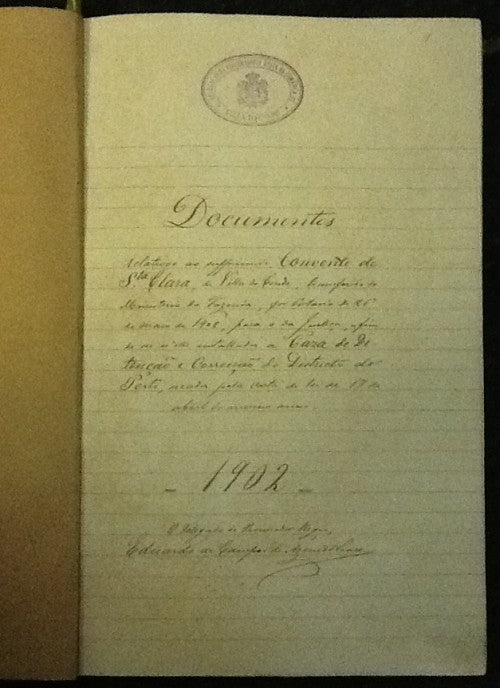 Documentos
relativos ao supprimido Convento de
Sta Clara, de Villa do Conde, transferido do
Ministerio da Fazenda, por Portaria de 26
de maio de 1902, para o da Justiça, a fim
de se installar a Caza de De
tenção e Correcção do Districto do
Porto, creada pela carta de lei de 17 de
abril do mesmo anno.
- 1902 -
O Delegado do Procurador Regio,
Eduardo de Campos de